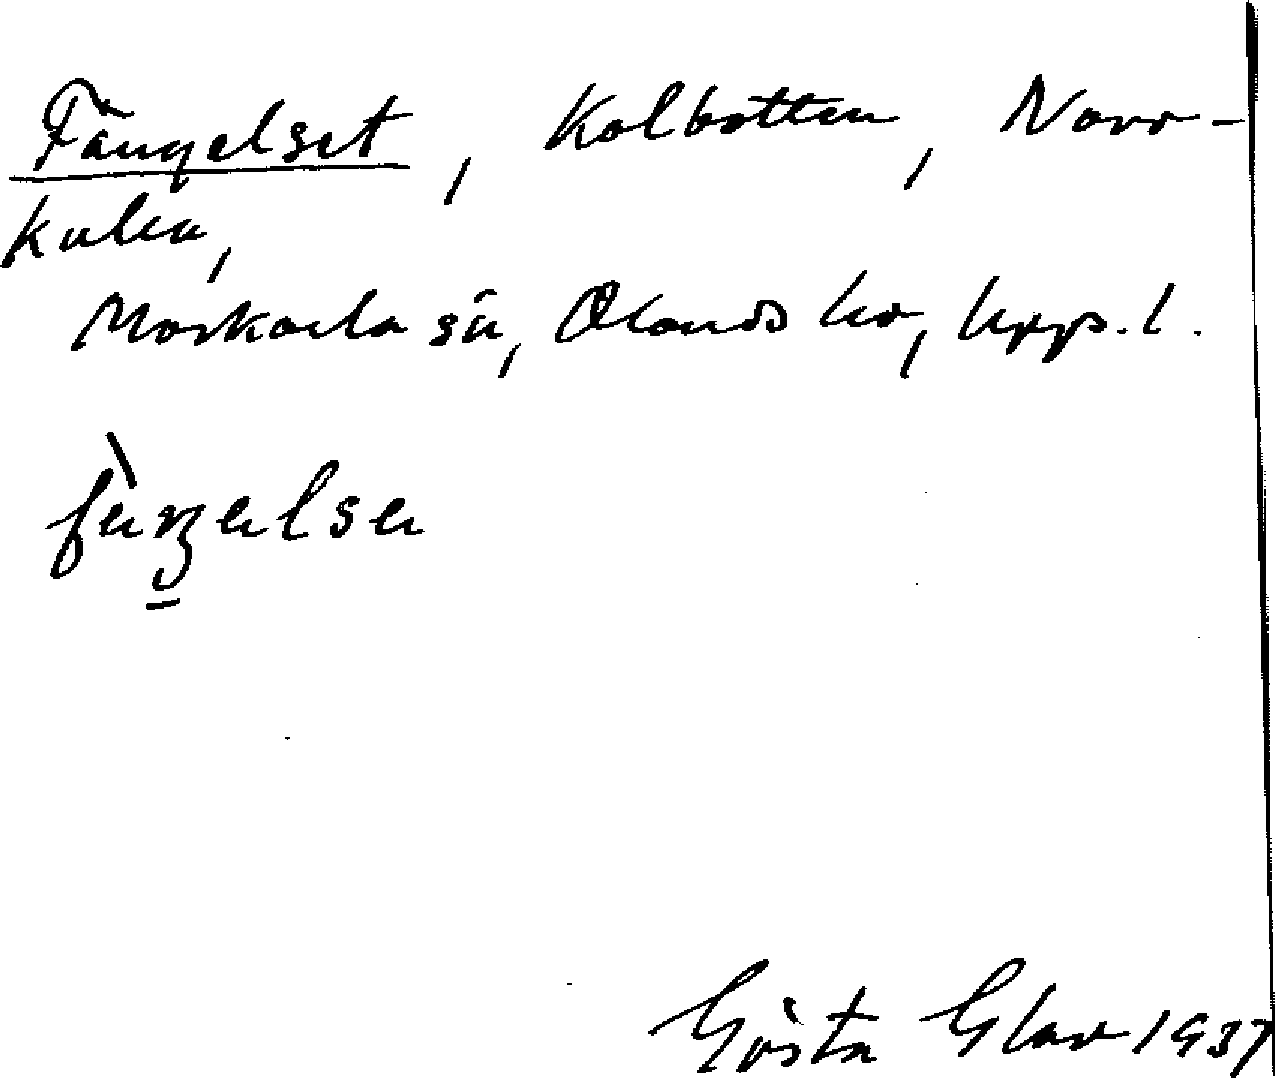 Fängelset, Kolbotten, Norr-
kulla,
Morkarla sn, Olands hd, Uppl.
fèŋelsə
Gösta Glav 1937